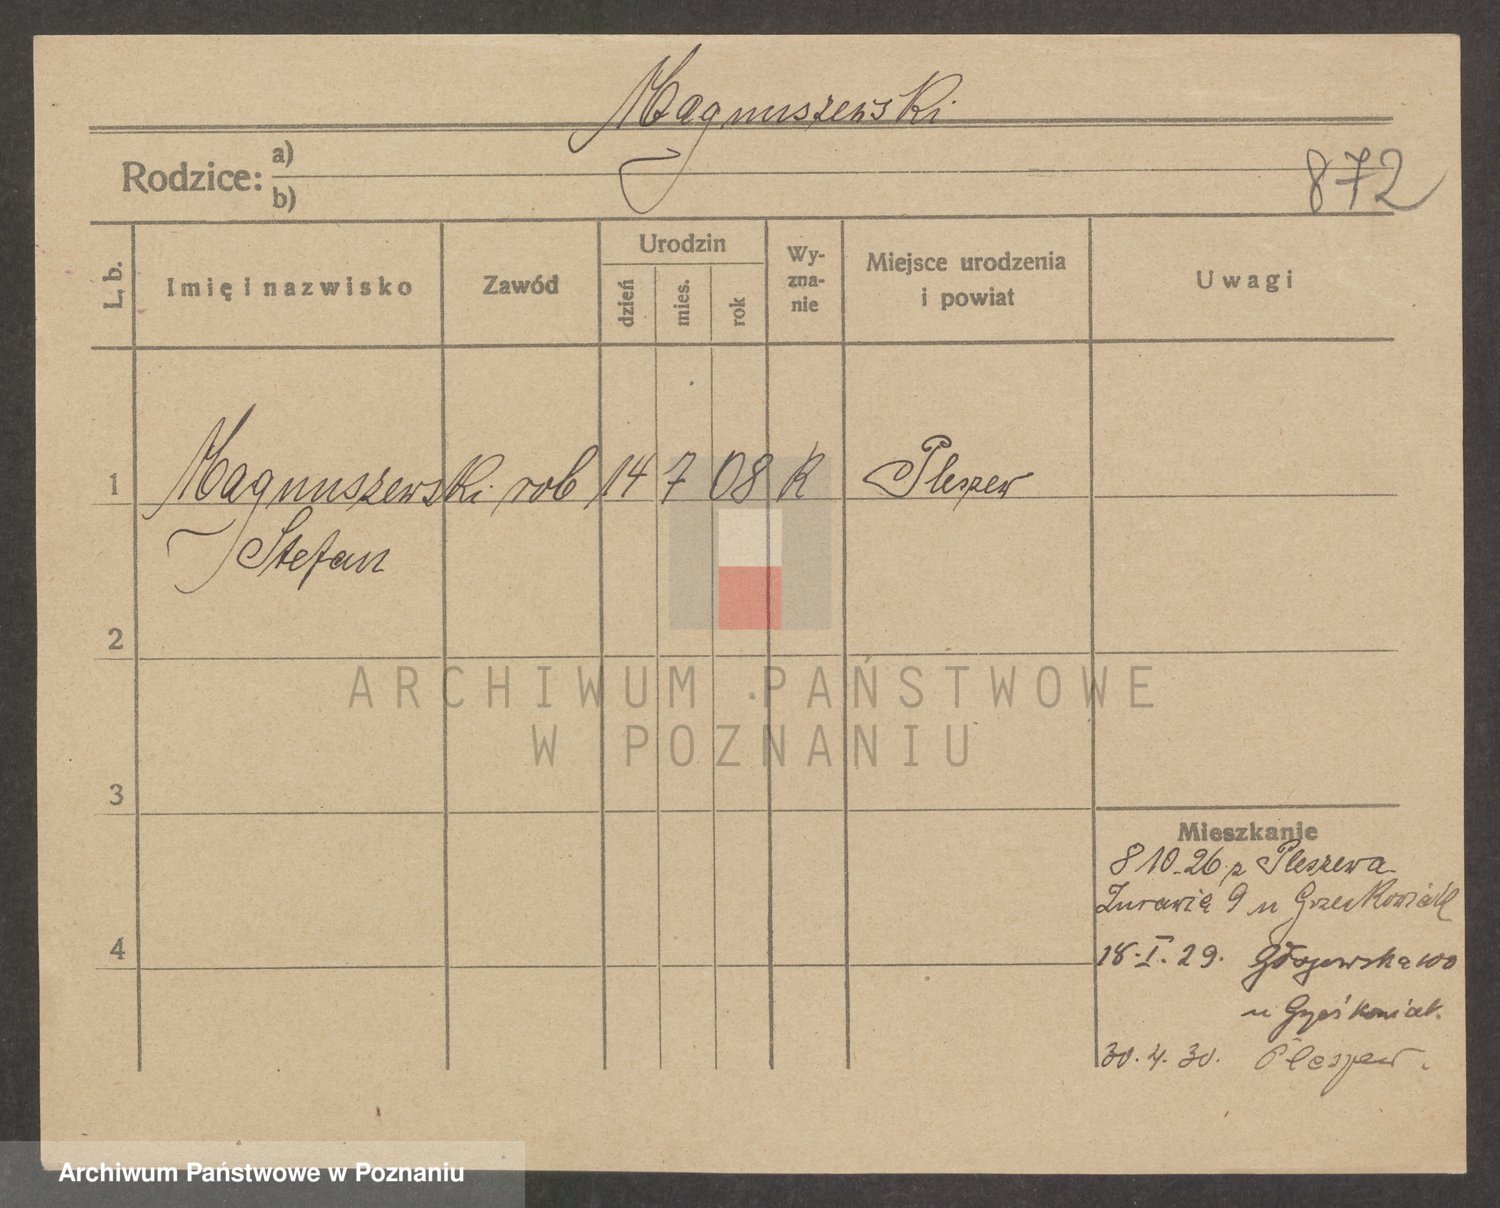 Magnuszewski
Rodzice: a)
b)
872
L. b.
Imię i nazwisko
Zawód
Urodzin
dzień
mies.
rok
Wy-
zna-
nie
Miejsce urodzenia
i powiat
Uwagi
1 Magnuszewski rob 14 7 08 K Pleszew
Stefan
2
3
4
ARCHIWUM PAŃSTWOWE
W POZNANIU
Mieszkanie
8 10.26 z Pleszewa
Żurawia 9 u
18.I.29.
u
30.4.30. Pleszew.
Archiwum Państwowe w Poznaniu